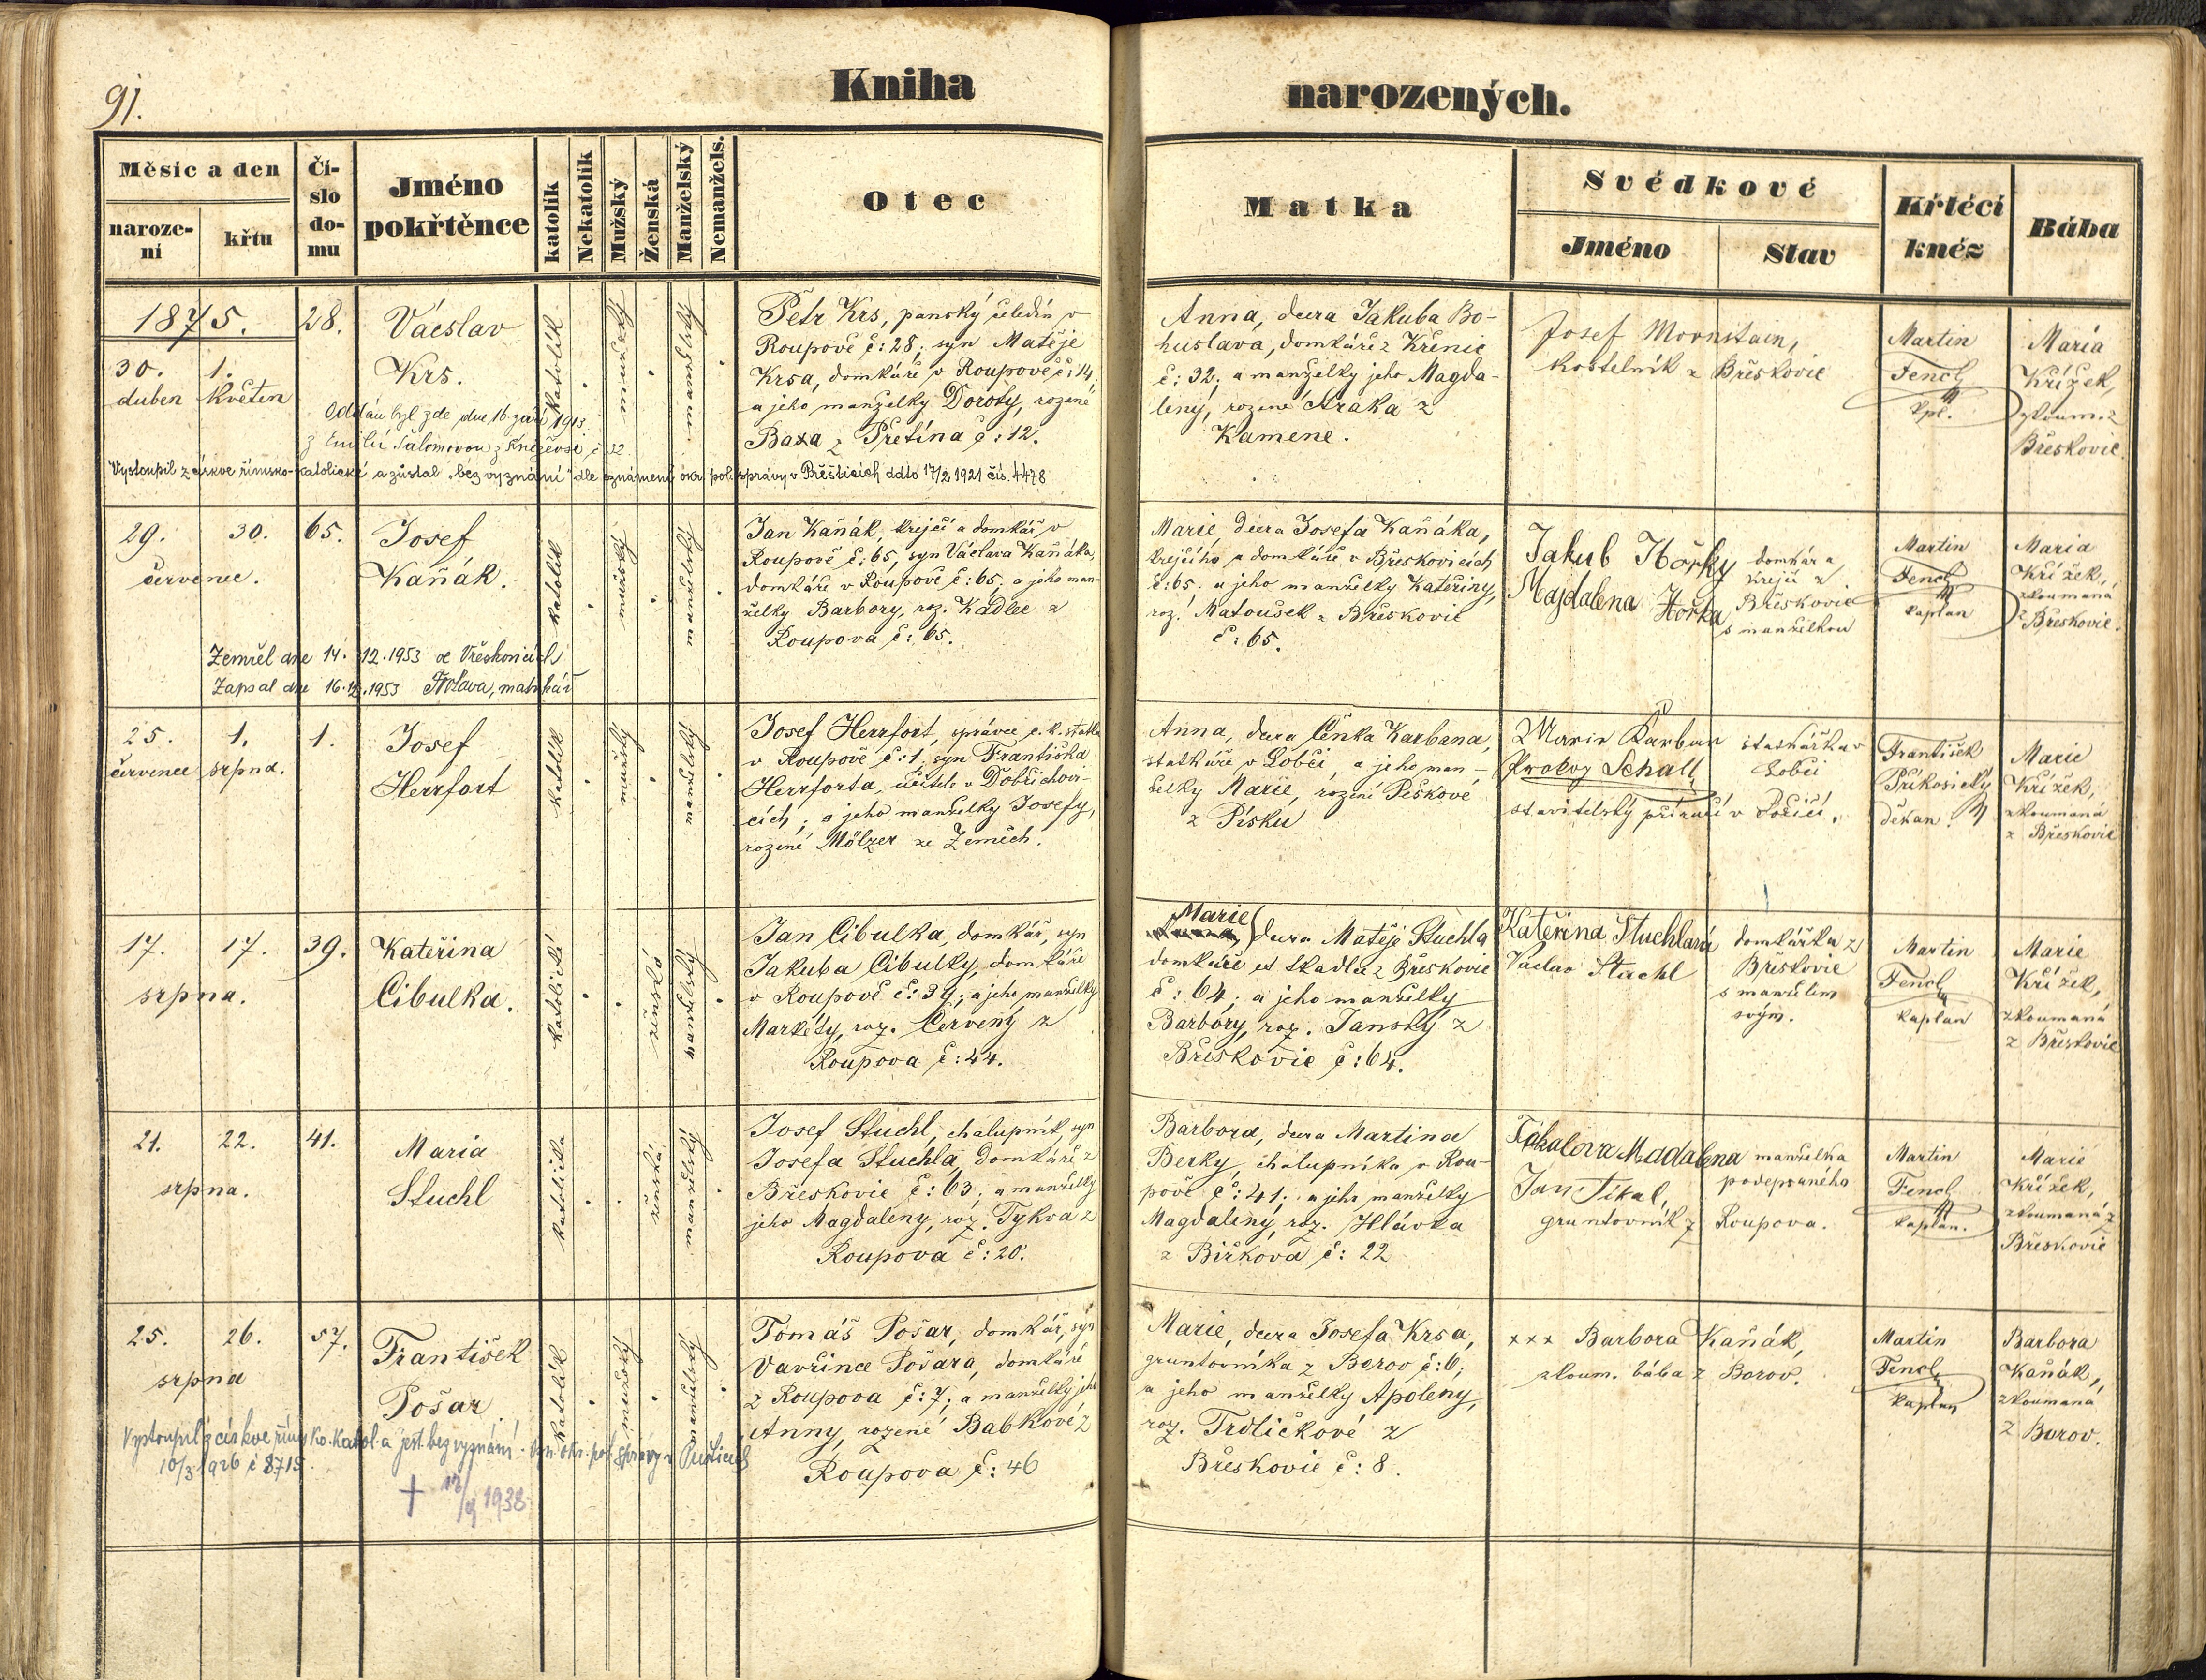 91.
Kniha
narozených.
Měsíc a den
naroze-
ní
křtu
Čí-
slo
do-
mu
Jméno
pokřtěnce
katolík
Nekatolík
Mužský
Ženská
Manželský
Nemanžels.
Otec
Matka
Svědkové
Jméno
Stav
Křtěcí
kněz
Bába
1875.
30. 1.
duben květen
28.
Václav
Krs.
katolík
mužský
manželský
Petr Krs, panský čeledín v
Roupově č: 28; syn Matěje
Krsa, domkáře v Roupově č: 14,
a jeho manželky Doroty, rozené
Baxa z Přetína č: 12.
Anna, dcera Jakuba Bo-
huslava, domkáře z Křenic
č: 32; a manželky jeho Magda-
leny, rozené Straka z
Kamene.
Josef Mornstain,
kostelník z Břeskovic
Martin
Fencl
kpl.
Maria
Křížek,
zkoum. z
Břeskovic.
Oddán byl zde dne 16. září 1913
z Emilií Šalomovou z Kněževsi č 22
Vystoupil z církve římsko-katolické a zůstal „bez vyznání" dle oznámení okr. pol. správy v Přešticích ddto 17/2 1921 čís. 4478
29. 30.
červenec.
65.
Josef
Kaňák.
katolík
mužský
manželský
Jan Kaňák, krejčí a domkář v
Roupově č: 65, syn Václava Kaňáka,
domkáře v Roupově č: 65; a jeho man-
želky Barbory, roz. Kadlec z
Roupova č: 65.
Marie, dcera Josefa Kaňáka,
krejčího a domkáře v Břeskovicích
č: 65; a jeho manželky Kateřiny,
roz. Matoušek z Břeskovic
č: 65.
Jakub Horky
Majdalena Horka
domkář a
krejčí z
Břeskovic
s manželkou
Martin
Fencl
kaplan
Maria
Křížek,
zkoumaná
z Břeskovic.
Zemřel dne 14. 12. 1953 ve Vřeskovicích
Zapsal dne 16. 12. 1953 matrikář
25. 1.
červenec srpna.
1.
Josef
Herrfort
katolík
mužský
manželský
Josef Herrfort, správce c. k. statku
v Roupově č: 1, syn Františka
Herrforta, učitele v Dobřichovi-
cích; a jeho manželky Josefy,
rozené Mölzer ze Zeměch.
Anna, dcera Čeňka Karbana,
statkáře v Lobči, a jeho man-
želky Marie, rozené Peškové
z Písku
Marie Karban
Prokop Schall
statkářka v
Lobči
stavitelský příručí v
František
Příkosický
děkan.
Marie
Křížek,
zkoumaná
z Břeskovic
17. 17.
srpna.
39.
Kateřina
Cibulka.
katolická
ženská
manželský
Jan Cibulka, domkář, syn
Jakuba Cibulky, domkáře
v Roupově č: 39; a jeho manželky
Markéty, roz. Červený z
Roupova č: 44.
Marie
dcera Matěje Stuchla
domkáře et tkadlce z Břeskovic
č: 64; a jeho manželky
Barbory, roz. Janský z
Břeskovic č: 64.
Kateřina Stuchlová
Václav Stuchl
domkářka z
Břeskovic
s manželem
svým.
Martin
Fencl
kaplan
Marie
Křížek,
zkoumaná
z Břeskovic
21. 22.
srpna.
41.
Maria
Stuchl
katolička
ženská
manželský
Josef Stuchl, chalupník, syn
Josefa Stuchla, domkáře z
Břeskovic č: 63; a manželky
jeho Magdaleny, roz. Tykva z
Roupova č: 20.
Barbora, dcera Martina
Berky, chalupníka v Rou-
pově č: 41; a jeho manželky
Magdaleny, roz. Hlávka
z Biřkova č: 22
Madalena
Jan Fikal,
gruntovník z Roupova.
manželka
podepsaného
Martin
Fencl
kaplan.
Marie
Křížek,
zkoumaná z
Břeskovic
25. 26.
srpna
57.
František
Pošar
katolík
mužský
manželský
Tomáš Pošar, domkář, syn
Vavřince Pošara, domkáře
z Roupova č: 7; a manželky jeho
Anny, rozené Babkové z
Roupova č: 46
Marie, dcera Josefa Krsa,
gruntovníka z Borov č: 6;
a jeho manželky Apoleny,
roz. Trdličkové z
Břeskovic č: 8.
××× Barbora Kaňák,
zkoum. bába z Borov.
Martin
Fencl
kaplan
Barbora
Kaňák,
zkoumaná
z Borov.
Vystoupil z církve římsko. katol. a jest bez vyznání. Ozn. okr. pol. správy v Přešticích
10/3 1926 č 8715.
† 12/9 1938